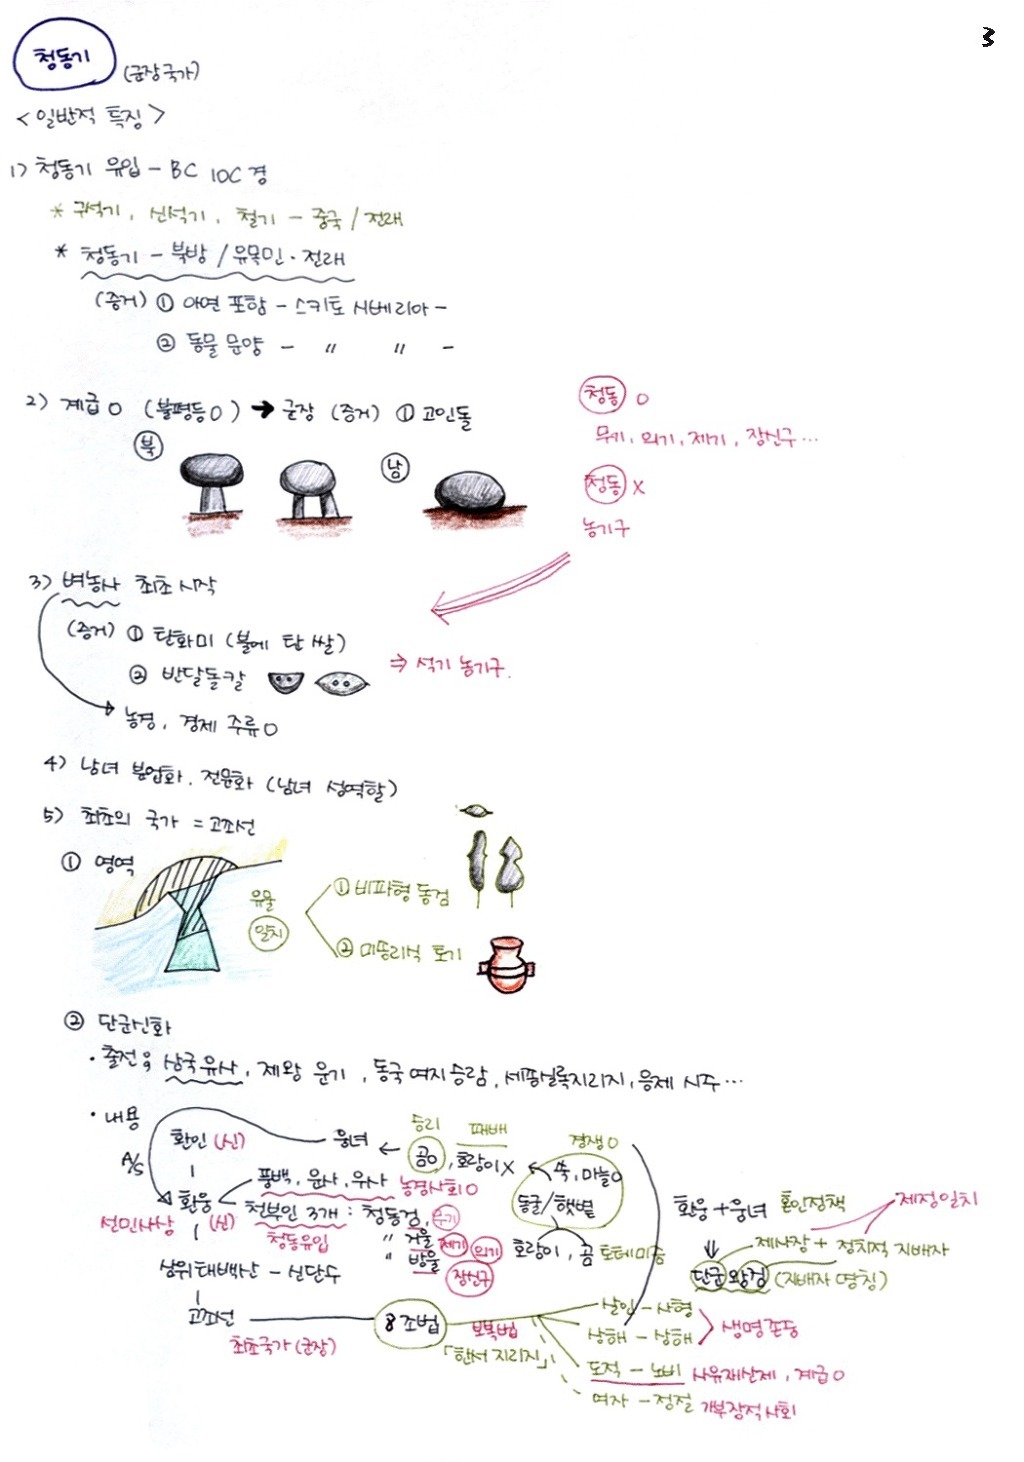 3
청동기 (군장국가)
<일반적 특징>
1) 청동기 유입 - BC 10C 경
* 구석기, 신석기, 철기 - 중국 / 전래
* 청동기 - 북방 / 유목민 · 전래
(증거) ① 아연 포함 - 스키토 시베리아 -
② 동물 문양 - 〃 〃 -
2) 계급 O (불평등 O) → 군장 (증거) ① 고인돌
북
남
청동 O
무기, 의기, 제기, 장신구…
청동 X
농기구
3) 벼농사 최초 시작
(증거) ① 탄화미 (불에 탄 쌀)
② 반달돌칼
⇒ 석기 농기구.
농경, 경제 주류 O
4) 남녀 분업화. 전문화 (남녀 성역할)
5) 최초의 국가 = 고조선
① 영역
유물
일치
① 비파형 동검
② 미송리식 토기
② 단군신화
· 출전; 삼국유사, 제왕 운기, 동국여지승람, 세종실록지리지, 응제 시주…
· 내용
A/S
환인 (신)
웅녀 ← 곰O, 호랑이X
승리 패배
쑥, 마늘O
동굴/햇볕
경쟁 O
호랑이, 곰 토테미즘
환웅 (신)
선민사상
풍백, 운사, 우사 농경사회 O
천부인 3개 : 청동검, 무기
청동유입
〃 거울 제기 의기
〃 방울
장신구
삼위태백산 - 신단수
환웅 + 웅녀 혼인정책
제정일치
제사장 + 정치적 지배자
단군 왕검 (지배자 명칭)
고조선
최초국가 (군장)
8조법
보복법
「한서 지리지」
살인 - 사형
상해 - 상해
생명존중
도적 - 노비 사유재산제, 계급 O
여자 - 정절 가부장적 사회